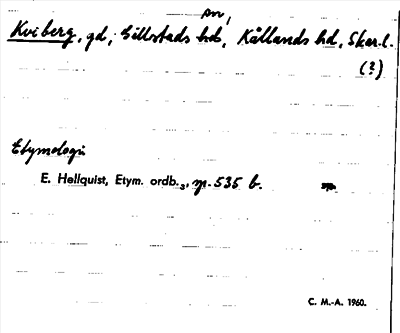 sn,
Kviberg, gd, Gillstads hd, Kållands hd, Skar. l.
(?)
Etymologi
E. Hellquist, Etym. ordb.3, p. 535 b.
C. M.-A. 1960.